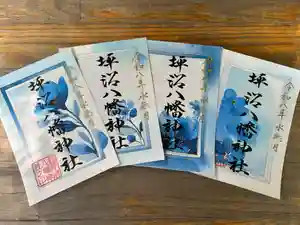 坪沼八幡神社
坪沼八幡神社
令和八年水無月
坪沼八幡神社
坪沼八幡神社
令和八年水無月